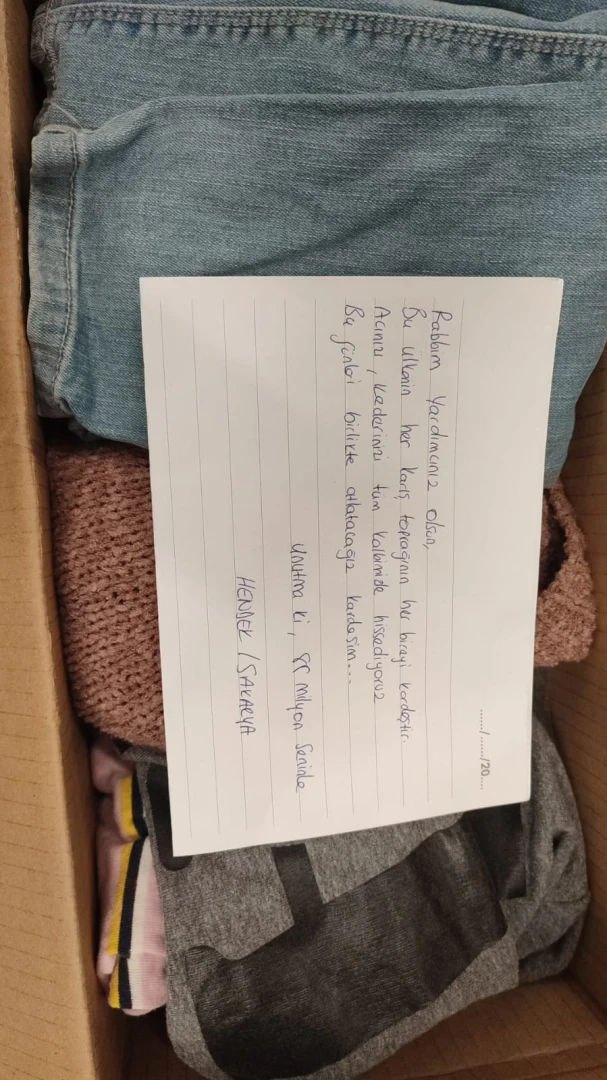 ....../....../20....
Rabbim Yardımcınız olsun,
Bu ülkenin her karış toprağının her bireyi kardeştir.
Acınızı, kederinizi tüm kalbimizde hissediyoruz
Bu günleri birlikte atlatacağız kardeşim...
Unutma ki, 85 milyon Seninle
HENDEK / SAKARYA